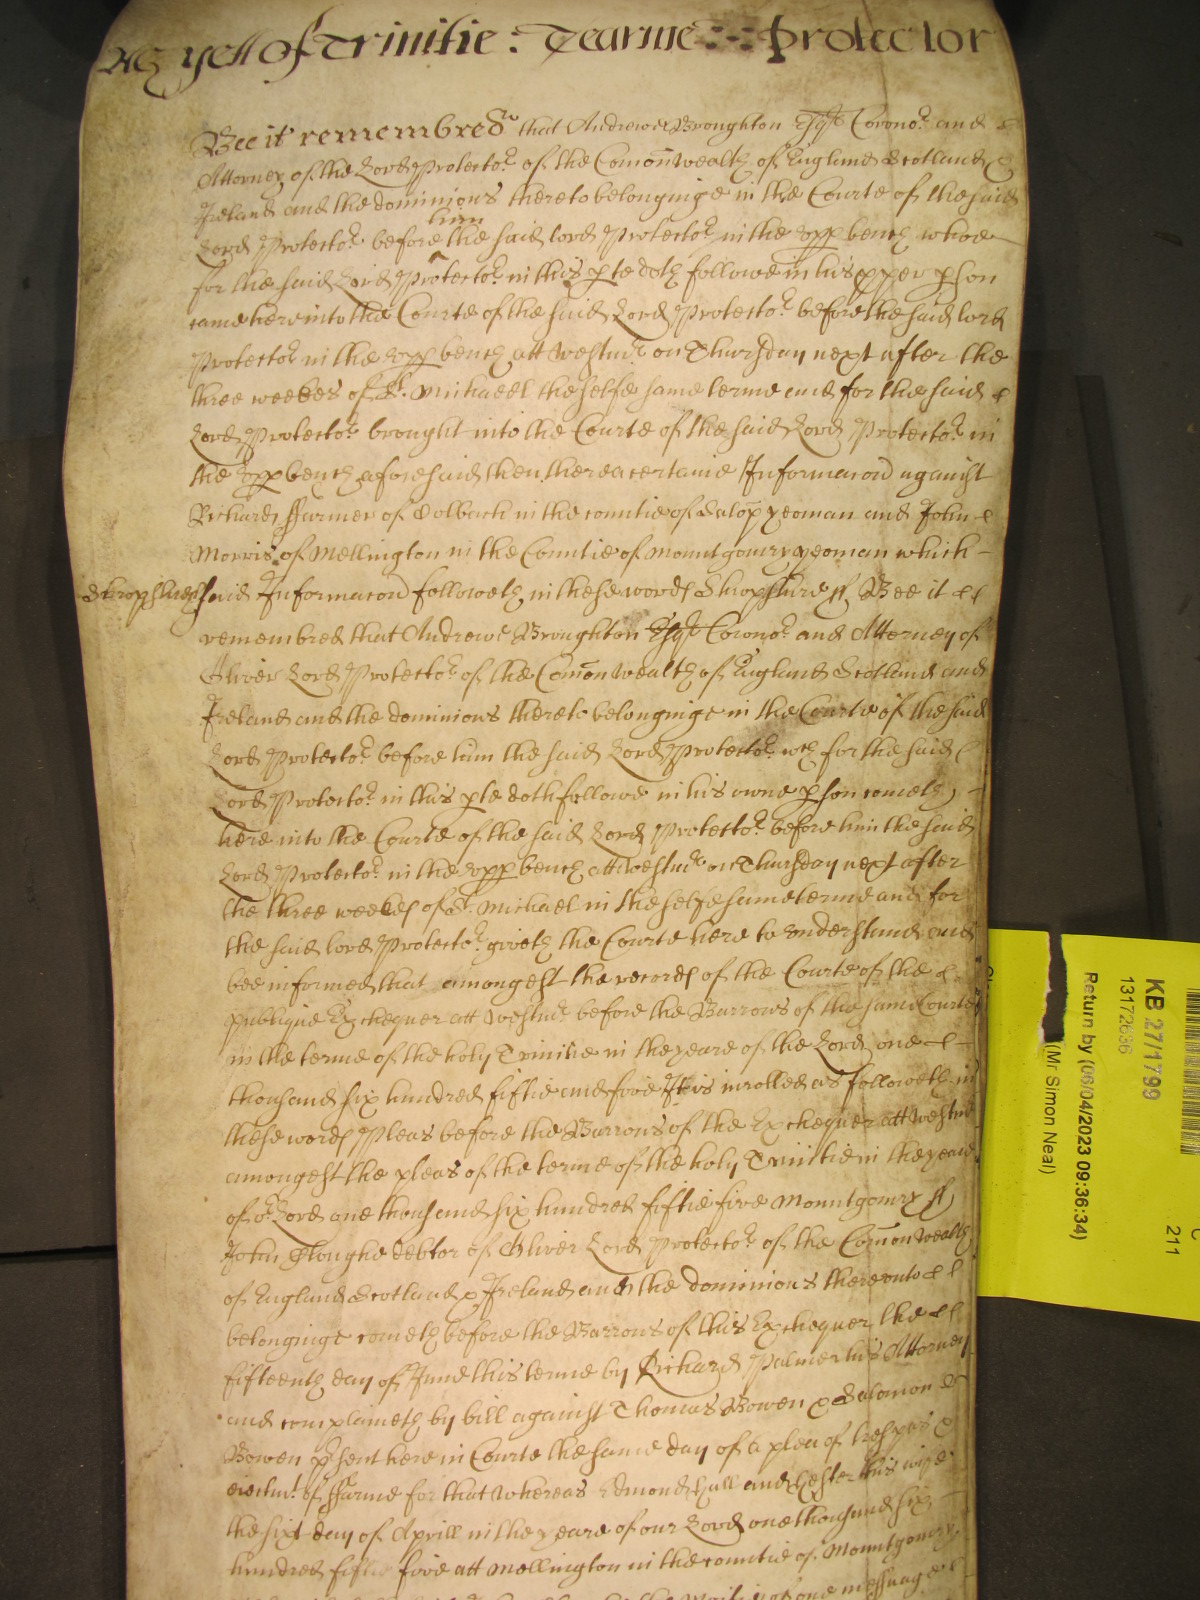 yett of Trinitie : Tearme Protector
Bee it remembred that Andrewe Broughton Esqr Corono.r and
Attorney of the Lord Protecto.r of the Comon wealth of England Scotland &
Ireland and the dominions thereto belonginge in the Courte of the said
him
Lord Protecto.r before the said lord Protecto.r in the upp bench whoe
for the said Lord Protecto.r in this pte doth followe in his pper pson
came here into the Courte of the said Lord Protecto.r before the said lord
Protecto.r in the upp bench att Westm.r on Thursday next after the
three weekes of St. Michaell the selfe same terme and for the said
Lord Protecto.r brought into the Courte of the said Lord Protecto.r in
the upp bench aforesaid then there a certaine Informacon against
Richard ffarmer of Solbach in the countie of Salop yeoman and John
Morris of Mellington in the Countie of Mountgomry yeoman which
Shropshire said Informacon followeth in these words Shropshire ss Bee it
remembred that Andrewe Broughton Esqr Corono.r and Atterney of
Oliver Lord Protecto.r of the Comon wealth of England Scotland and
Ireland and the dominions thereto belonginge in the Courte of the said
Lord Protecto.r before him the said Lord Protecto.r wch for the said
Lord Protecto.r in this pte doth followe in his owne pson cometh
here into the Courte of the said Lord Protecto.r before him the said
Lord Protecto.r in the upp bench att Westm.r on Thursday next after
the three weekes of St. Michael in the selfe same terme and for
the said lord Protecto.r giveth the Courte here to understand and
bee informed that amongest the records of the Courte of the
publique Exchequer att Westm.r before the Barrons of the same Courte
in the terme of the holy Trinitie in the yeare of the Lord one
thousand six hundred fiftie and five It is inrolled as followeth in
these words Pleas before the Barrons of the Exchequer att Westm.r
amongest the pleas of the terme of the holy Trinitie in the yeare
of o.r Lord one thousand six hundred fiftie five Mountgomry ss
John Cloughe debtor of Oliver Lord Protecto.r of the Comon wealth
of England Scotland & Ireland and the dominions thereunto
belonginge cometh before the Barrons of this Exchequer the
fifteenth day of June this terme by Richard Palmer his Attorney
and complaineth by bill against Thomas Bowen & Salomon
Bowen psent here in Courte the same day of a plea of trespas &
eiectmt of ffarme for that whereas Edmond Hall and Hester his wife
the sixt day of Aprill in the yeare of our Lord one thousand six
hundred fiftie five att Mellington in the countie of Mountgomry
one messuage
KB 27/1799
13172636
Return by (06/04/2023 09:36:34)
(Mr Simon Neal)
C
211